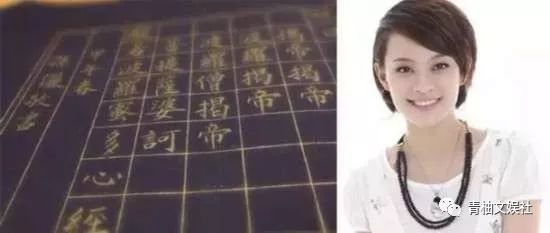 揭帝揭帝
波羅揭帝
波羅僧揭帝
菩提薩婆訶
般若波羅蜜多心經
甲午春
孫儷敬書
青柚文娱社